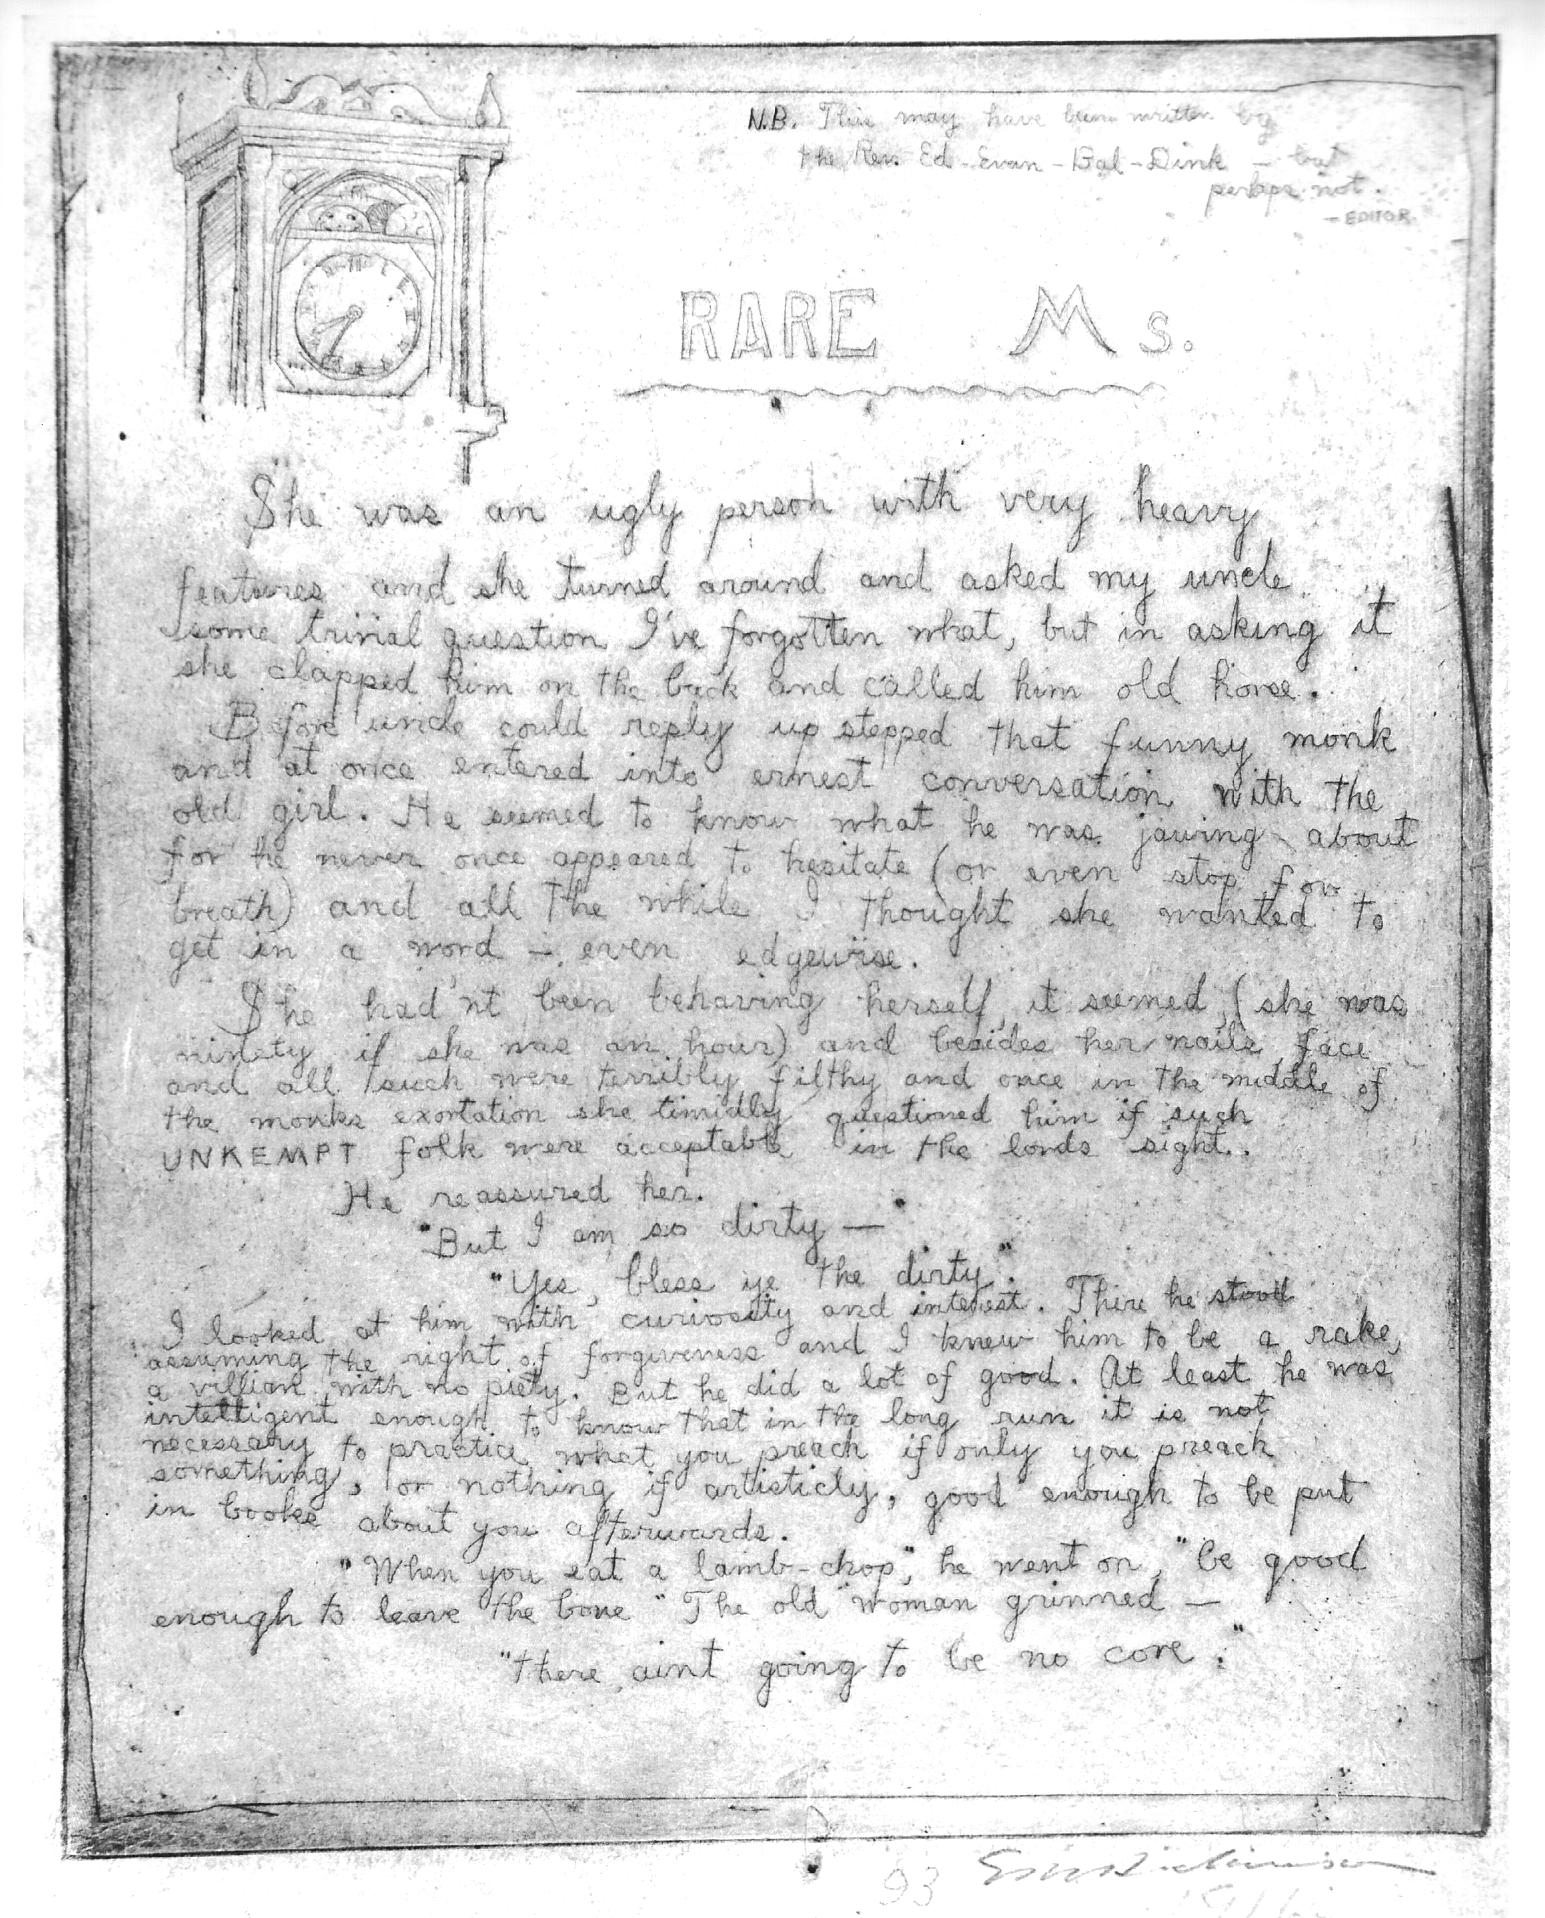 N.B. This may have been written by
the Rev. Ed-Evan-Bal-Dink — but
perhaps not.
- EDITOR
RARE Ms.
She was an ugly person with very heavy
features and she turned around and asked my uncle
some trivial question I've forgotten what, but in asking it
she clapped him on the back and called him old horse.
Before uncle could reply up stepped that funny monk
and at once entered into ernest conversation with the
old girl. He seemed to know what he was jawing about
for he never once appeared to hesitate (or even stop for
breath) and all the while I thought she wanted to
get in a word - even edgewise.
She had'nt been behaving herself, it seemed, (she was
ninety if she was an hour) and besides her nails, face
and all such were terribly filthy and once in the middle of
the monks exortation she timidly questioned him if such
UNKEMPT folk were acceptable in the lords sight.
He reassured her.
"But I am so dirty — "
"Yes, bless ye the dirty".
I looked at him with curiosity and interest. There he stood
assuming the right of forgiveness and I knew him to be a rake,
a villian with no piety. But he did a lot of good. At least he was
intelligent enough to know that in the long run it is not
necessary to practice what you preach if only you preach
something, or nothing if artisticly, good enough to be put
in books about you afterwards.
"When you eat a lamb-chop", he went on, "be good
enough to leave the bone" The old woman grinned —
"there aint going to be no core."
93 EWDickinson